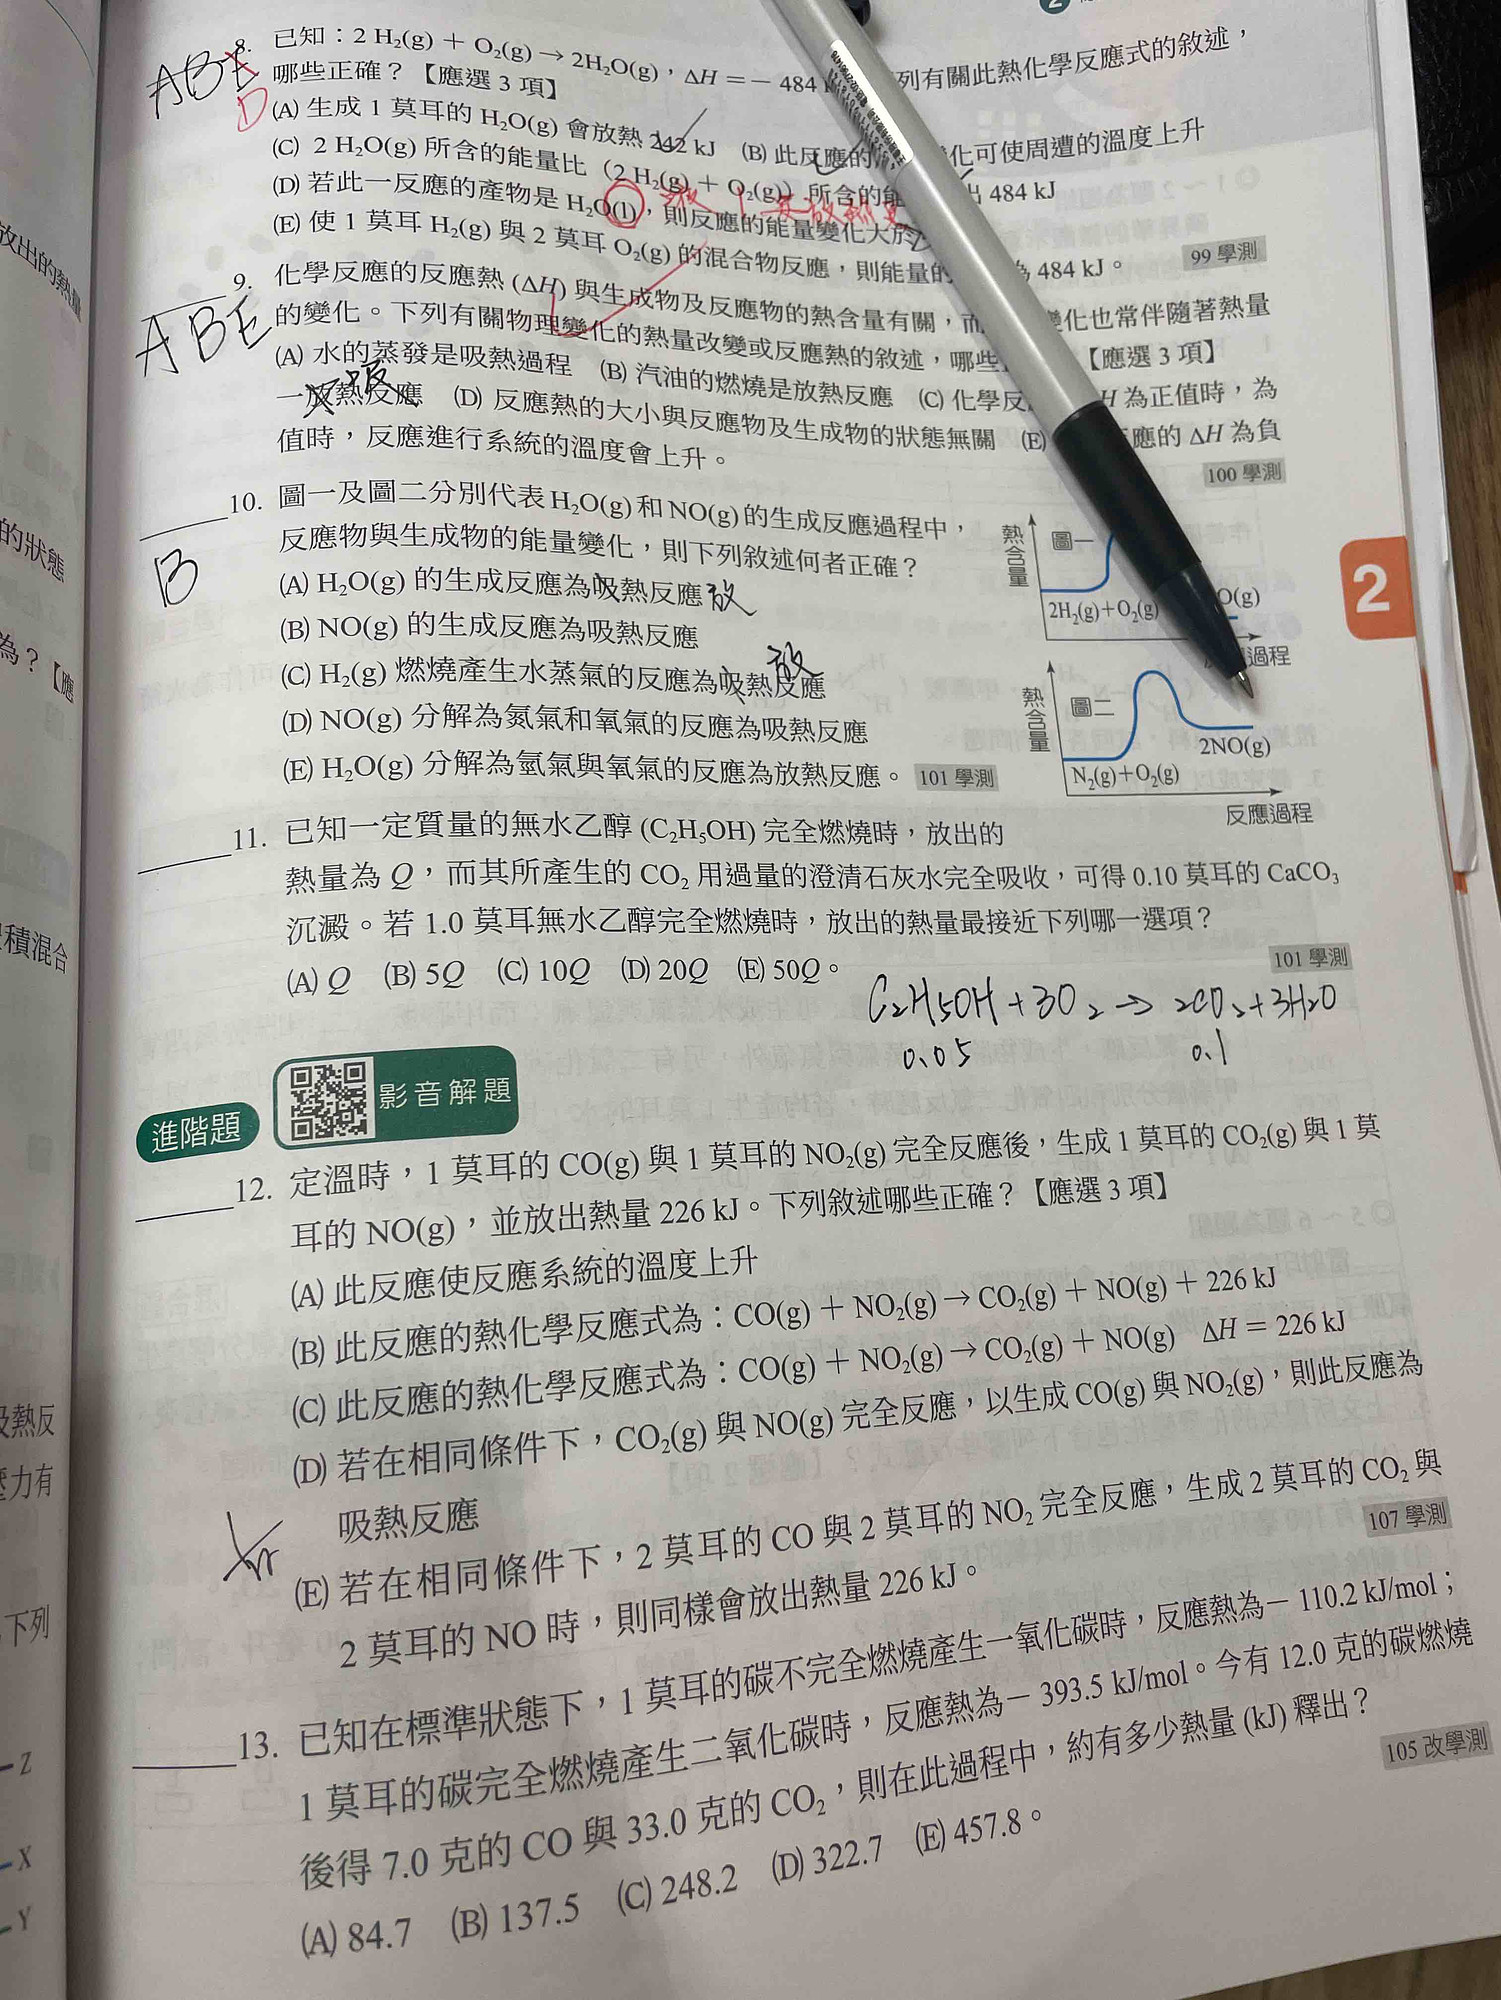 8. 已知：2 H₂(g) + O₂(g) → 2H₂O(g)，ΔH = − 484 列有關此熱化學反應式的敘述，
ABE
D
哪些正確？【應選 3 項】
(A) 生成 1 莫耳的 H₂O(g) 會放熱 242 kJ (B) 此反應的 化可使周遭的溫度上升
(C) 2 H₂O(g) 所含的能量比（2 H₂(g) + O₂(g)）所含的能 出 484 kJ
(D) 若此一反應的產物是 H₂O(l)，則反應的能量變化大於
(E) 使 1 莫耳 H₂(g) 與 2 莫耳 O₂(g) 的混合物反應，則能量的 為 484 kJ。
99 學測
9. 化學反應的反應熱 (ΔH) 與生成物及反應物的熱含量有關，而 變化也常伴隨著熱量
ABE
的變化。下列有關物理變化的熱量改變或反應熱的敘述，哪些 【應選 3 項】
(A) 水的蒸發是吸熱過程 (B) 汽油的燃燒是放熱反應 (C) 化學反 H 為正值時，為
一放熱反應 (D) 反應熱的大小與反應物及生成物的狀態無關 (E) 應的 ΔH 為負
吸
值時，反應進行系統的溫度會上升。
100 學測
10. 圖一及圖二分別代表 H₂O(g) 和 NO(g) 的生成反應過程中，
B
反應物與生成物的能量變化，則下列敘述何者正確？
(A) H₂O(g) 的生成反應為吸熱反應 放
(B) NO(g) 的生成反應為吸熱反應
(C) H₂(g) 燃燒產生水蒸氣的反應為吸熱反應
放
(D) NO(g) 分解為氮氣和氧氣的反應為吸熱反應
(E) H₂O(g) 分解為氫氣與氧氣的反應為放熱反應。 101 學測
熱含量
圖一
2H₂(g)+O₂(g)
O(g)
過程
熱含量
圖二
2NO(g)
N₂(g)+O₂(g)
反應過程
11. 已知一定質量的無水乙醇 (C₂H₅OH) 完全燃燒時，放出的
熱量為 Q，而其所產生的 CO₂ 用過量的澄清石灰水完全吸收，可得 0.10 莫耳的 CaCO₃
沉澱。若 1.0 莫耳無水乙醇完全燃燒時，放出的熱量最接近下列哪一選項？
(A) Q (B) 5Q (C) 10Q (D) 20Q (E) 50Q。
101 學測
C₂H₅OH + 3O₂ → 2CO₂ + 3H₂O
0.05 0.1
進階題
影音解題
12. 定溫時，1 莫耳的 CO(g) 與 1 莫耳的 NO₂(g) 完全反應後，生成 1 莫耳的 CO₂(g) 與 1 莫
耳的 NO(g)，並放出熱量 226 kJ。下列敘述哪些正確？【應選 3 項】
(A) 此反應使反應系統的溫度上升
(B) 此反應的熱化學反應式為：CO(g) + NO₂(g) → CO₂(g) + NO(g) + 226 kJ
(C) 此反應的熱化學反應式為：CO(g) + NO₂(g) → CO₂(g) + NO(g) ΔH = 226 kJ
(D) 若在相同條件下，CO₂(g) 與 NO(g) 完全反應，以生成 CO(g) 與 NO₂(g)，則此反應為
吸熱反應
(E) 若在相同條件下，2 莫耳的 CO 與 2 莫耳的 NO₂ 完全反應，生成 2 莫耳的 CO₂ 與
2 莫耳的 NO 時，則同樣會放出熱量 226 kJ。
107 學測
13. 已知在標準狀態下，1 莫耳的碳不完全燃燒產生一氧化碳時，反應熱為－ 110.2 kJ/mol；
1 莫耳的碳完全燃燒產生二氧化碳時，反應熱為－ 393.5 kJ/mol。今有 12.0 克的碳燃燒
後得 7.0 克的 CO 與 33.0 克的 CO₂，則在此過程中，約有多少熱量 (kJ) 釋出？
(A) 84.7 (B) 137.5 (C) 248.2 (D) 322.7 (E) 457.8。
105 改學測
2
放出的熱量
的狀態
為？【應
積混合
吸熱反
壓力有
下列
Z
X
Y